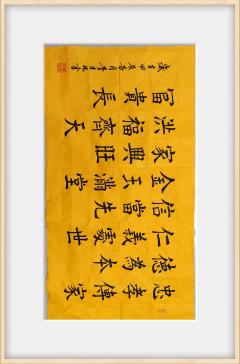 忠孝傳家
德為本
仁義處世
信當先
金玉滿堂
家興旺
洪福齊天
富貴長
甲辰